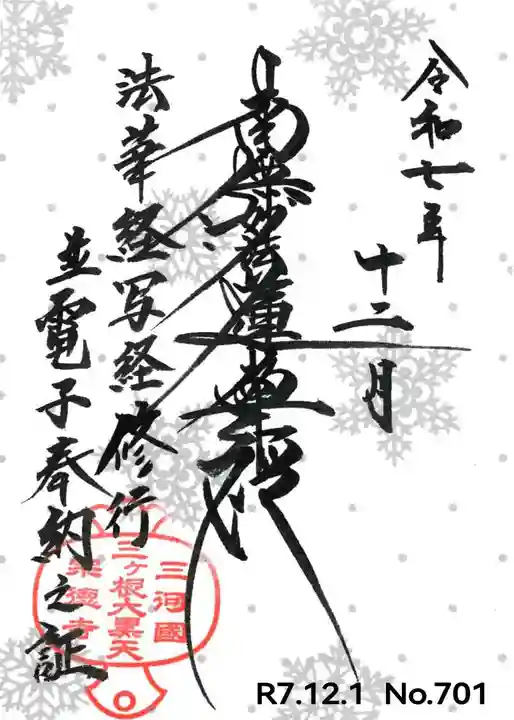 令和七年
十二月
南無妙法蓮華経
法華経写経修行
並電子奉納之証
三河國
三ヶ根大黒天
宗徳寺
R7.12.1 No.701